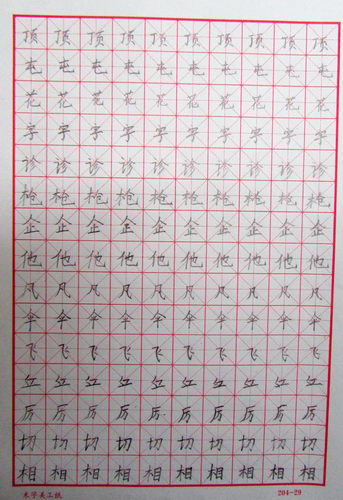 顶顶顶顶顶顶顶顶顶顶
屯屯屯屯屯屯屯屯屯屯
花花花花花花花花花花
字字字字字字字字字字
诊诊诊诊诊诊诊诊诊诊
枪枪枪枪枪枪枪枪枪枪
企企企企企企企企企企
他他他他他他他他他他
伞伞伞伞伞伞伞伞伞伞
飞飞飞飞飞飞飞飞飞飞
厉厉厉厉厉厉厉厉厉厉
切切切切切切切切切切
相相相相相相相相相相
米字美工纸 204-29